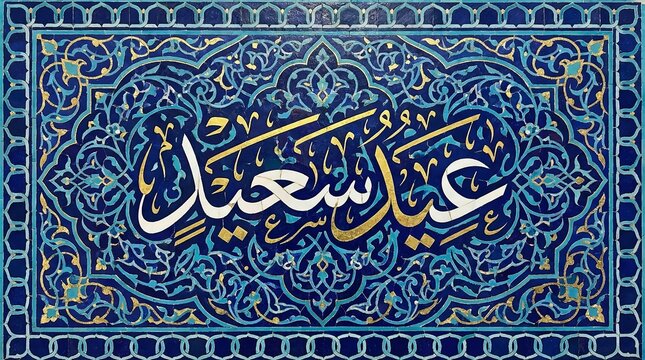 عيد سعيد